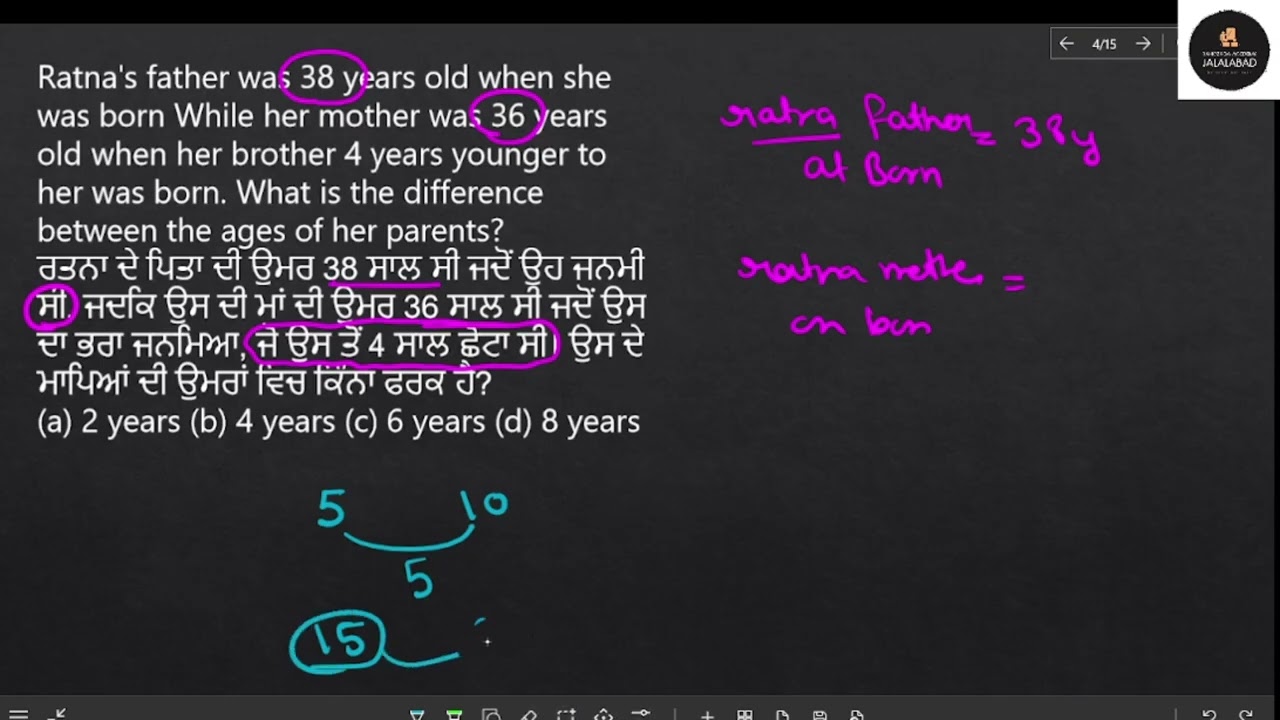 4/15
JALALABAD
Ratna's father was 38 years old when she
was born While her mother was 36 years
old when her brother 4 years younger to
her was born. What is the difference
between the ages of her parents?
ਰਤਨਾ ਦੇ ਪਿਤਾ ਦੀ ਉਮਰ 38 ਸਾਲ ਸੀ ਜਦੋਂ ਉਹ ਜਨਮੀ
ਸੀ. ਜਦਕਿ ਉਸ ਦੀ ਮਾਂ ਦੀ ਉਮਰ 36 ਸਾਲ ਸੀ ਜਦੋਂ ਉਸ
ਦਾ ਭਰਾ ਜਨਮਿਆ, ਜੋ ਉਸ ਤੋਂ 4 ਸਾਲ ਛੋਟਾ ਸੀ। ਉਸ ਦੇ
ਮਾਪਿਆਂ ਦੀ ਉਮਰਾਂ ਵਿਚ ਕਿੰਨਾ ਫਰਕ ਹੈ?
(a) 2 years (b) 4 years (c) 6 years (d) 8 years
ratra father = 38y
at Born
ratna =
on
5 10
5
15